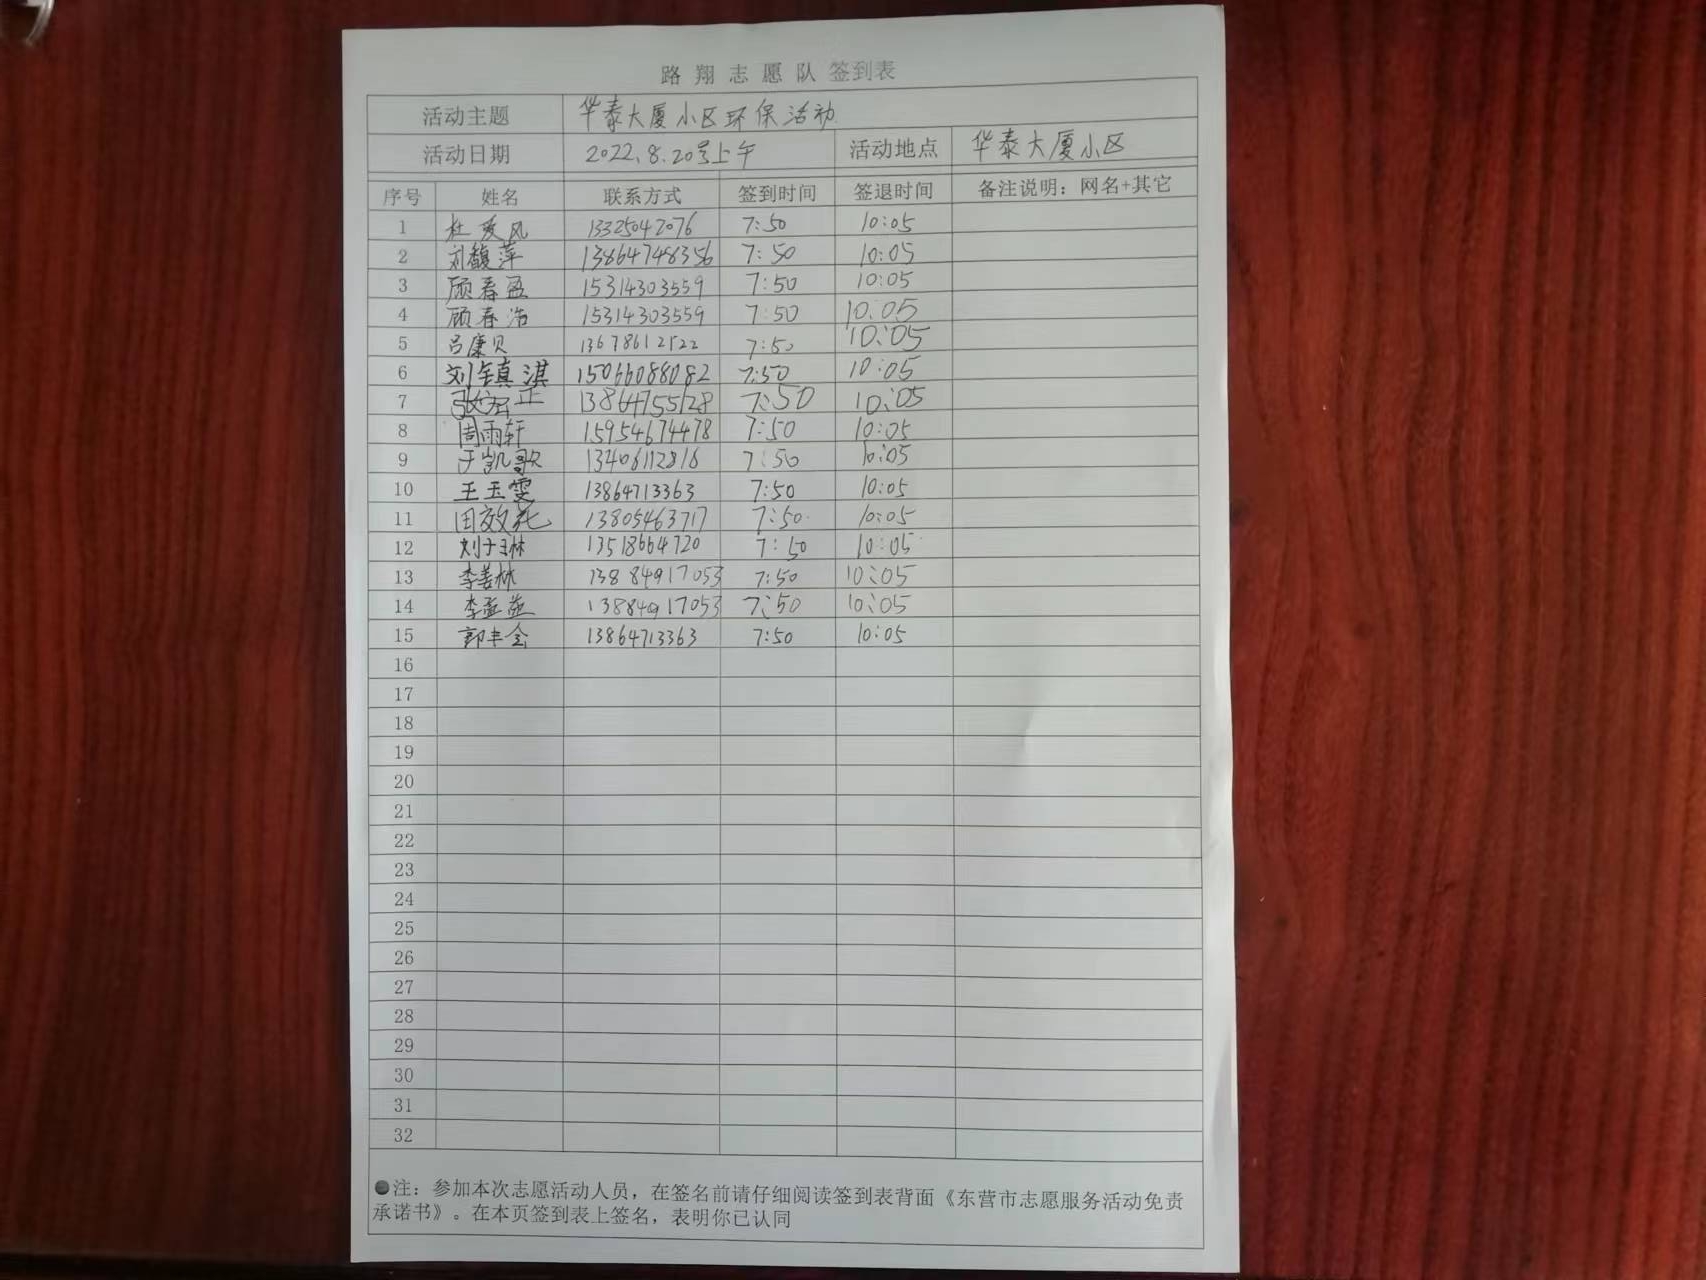 路翔志愿队签到表
活动主题 华泰大厦小区环保活动
活动日期 2022.8.20号上午 活动地点 华泰大厦小区
序号 姓名 联系方式 签到时间 签退时间 备注说明：网名+其它
1 杜爱风 13325042076 7:50 10:05
2 刘馥萍 13864748356 7:50 10:05
3 顾春盈 15314303559 7:50 10:05
4 顾春浩 15314303559 7:50 10:05
5 吕康贝 7:50 10:05
6 刘镇淇 15066088082 7:50 10:05
7 13864755128 7:50 10:05
8 周雨轩 15954674478 7:50 10:05
9 于凯歌 13406112816 7:50 10:05
10 王玉雯 13864713363 7:50 10:05
11 田效 13805463717 7:50 10:05
12 刘子琳 13518664720 7:50 10:05
13 李姜林 13884917053 7:50 10:05
14 李孟 13884917053 7:50 10:05
15 郭丰会 13864713363 7:50 10:05
16
17
18
19
20
21
22
23
24
25
26
27
28
29
30
31
32
●注：参加本次志愿活动人员，在签名前请仔细阅读签到表背面《东营市志愿服务活动免责
承诺书》。在本页签到表上签名，表明你已认同